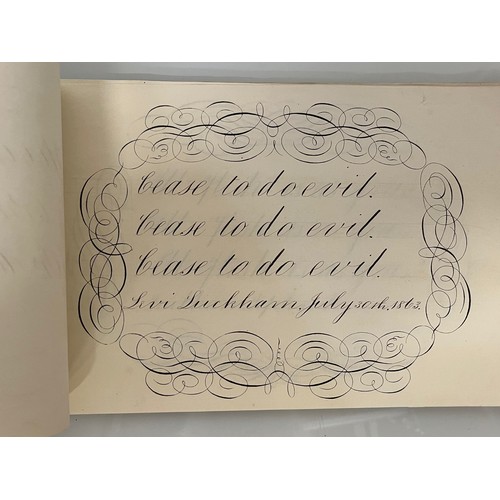 Cease to do evil.
Cease to do evil.
Cease to do evil.
Levi Luckham, July 30th, 1863.